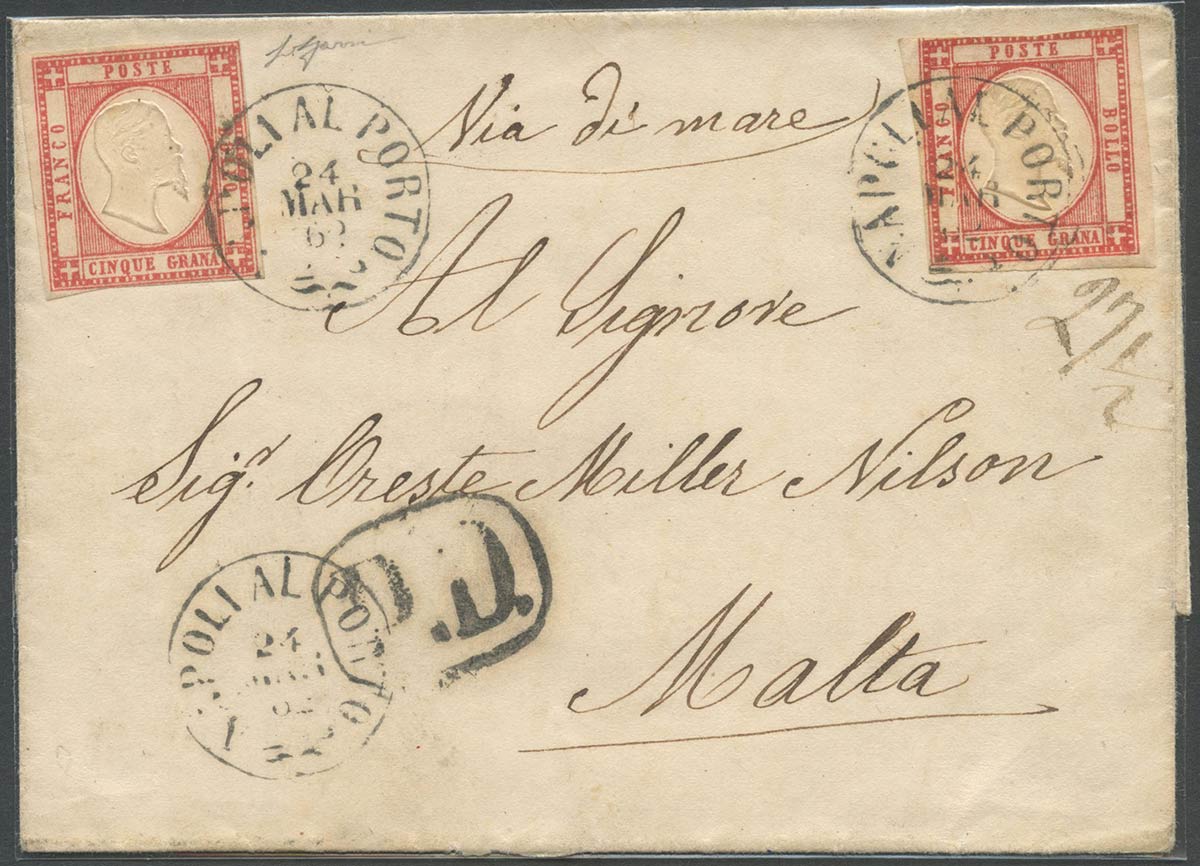 POSTE
FRANCO
CINQUE GRANA
POLI AL PORTO
24
MAR
62
Via di mare
POSTE
FRANCO
BOLLO
CINQUE GRANA
NAPOLI AL PORTO
24
MAR
2 1/2
Al Signore
Sig.r Oreste Miller Nilson
Malta
APOLI AL PORTO
24
MAR
62
P.D.